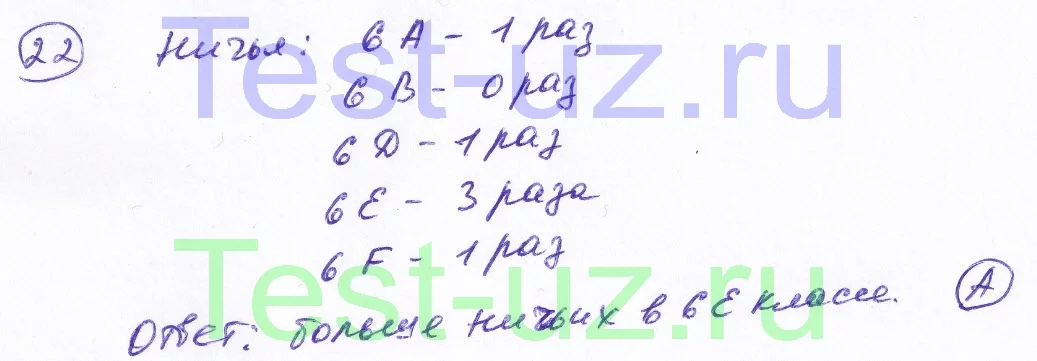 22 Ничья: 6 А - 1 раз
Test-uz.ru
6 В - 0 раз
6 D - 1 раз
6 Е - 3 раза
6 F - 1 раз
Test-uz.ru
Ответ: больше ничьих в 6 Е классе. А